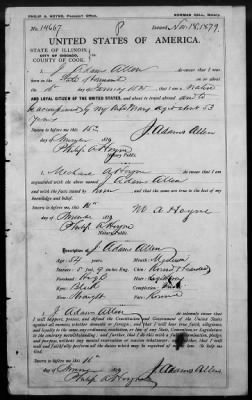 PHILIP A. HOYNE, Passport Office.
NORMAN BELL, Notary.
No. 14667
Issued Nov. 18, 1879.
UNITED STATES OF AMERICA.
STATE OF ILLINOIS,
CITY OF CHICAGO,
COUNTY OF COOK.
I, J. Adams Allen do swear that I was
born in the State of Vermont on or about
the 16 day of January 1825, that I am a Native
AND LOYAL CITIZEN OF THE UNITED STATES, and about to travel abroad and to
be accompanied by my wife Mary aged about 53
years
Sworn to before me this 15th
day of 1879
J. Adams Allen
Philip A. Hoyne
Notary Public.
I, A Hoyne do swear that I am
acquainted with the above named J. Adams Allen
and with the facts stated by him and that the same are true to the best of my
knowledge and belief.
Sworn to before me this
day of 1879
M A. Hoyne
Philip A. Hoyne
Notary Public.
Description of J. Adams Allen
Age: 54 years
Mouth: Medium
Stature: 5 feet, 9 inches Eng.
Chin:
Forehead: High
Hair:
Eyes:
Complexion:
Nose: Straight
Face:
I, J Adams Allen do solemnly swear that
I will support, protect, and defend the Constitution and Government of the United States
against all enemies, whether domestic or foreign; and that I will bear true faith, allegiance
and loyalty to the same, any ordinance, resolution or law of any State, Convention, or Legislature
to the contrary notwithstanding; and further, that I do this with a full determination, pledge
and purpose, without any mental reservation or evasion whatsoever; and further, that I will
well and faithfully perform all the duties which may be required of me by law. So help me
God.
Sworn to before me this 16
day of 1879
J Adams Allen
Philip A. Hoyne